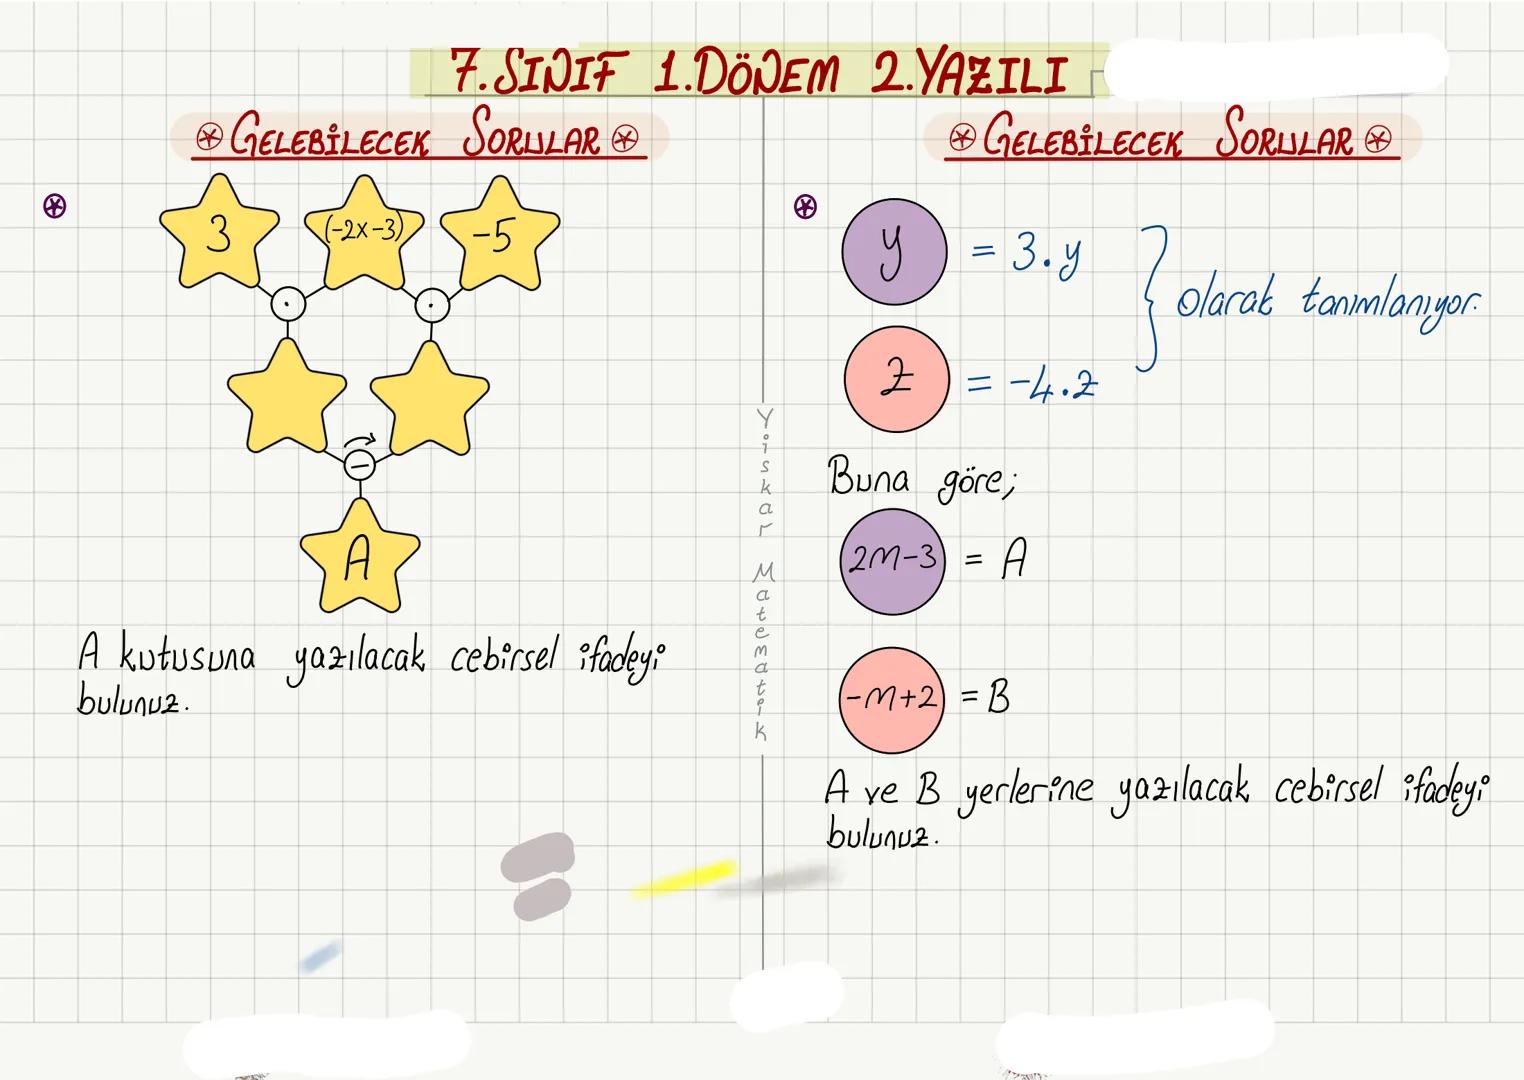 7. SINIF 1.DÖNEM 2.YAZILI
GELEBİLECEK SORULAR
3
(-2x-3)
-5
.
.
−
A
A kutusuna yazılacak cebirsel ifadeyi
bulunuz.
Yiskar Matematik
GELEBİLECEK SORULAR
y = 3.y
z = -4.z
olarak tanımlanıyor.
Buna göre;
2m-3 = A
-m+2 = B
A ve B yerlerine yazılacak cebirsel ifadeyi
bulunuz.